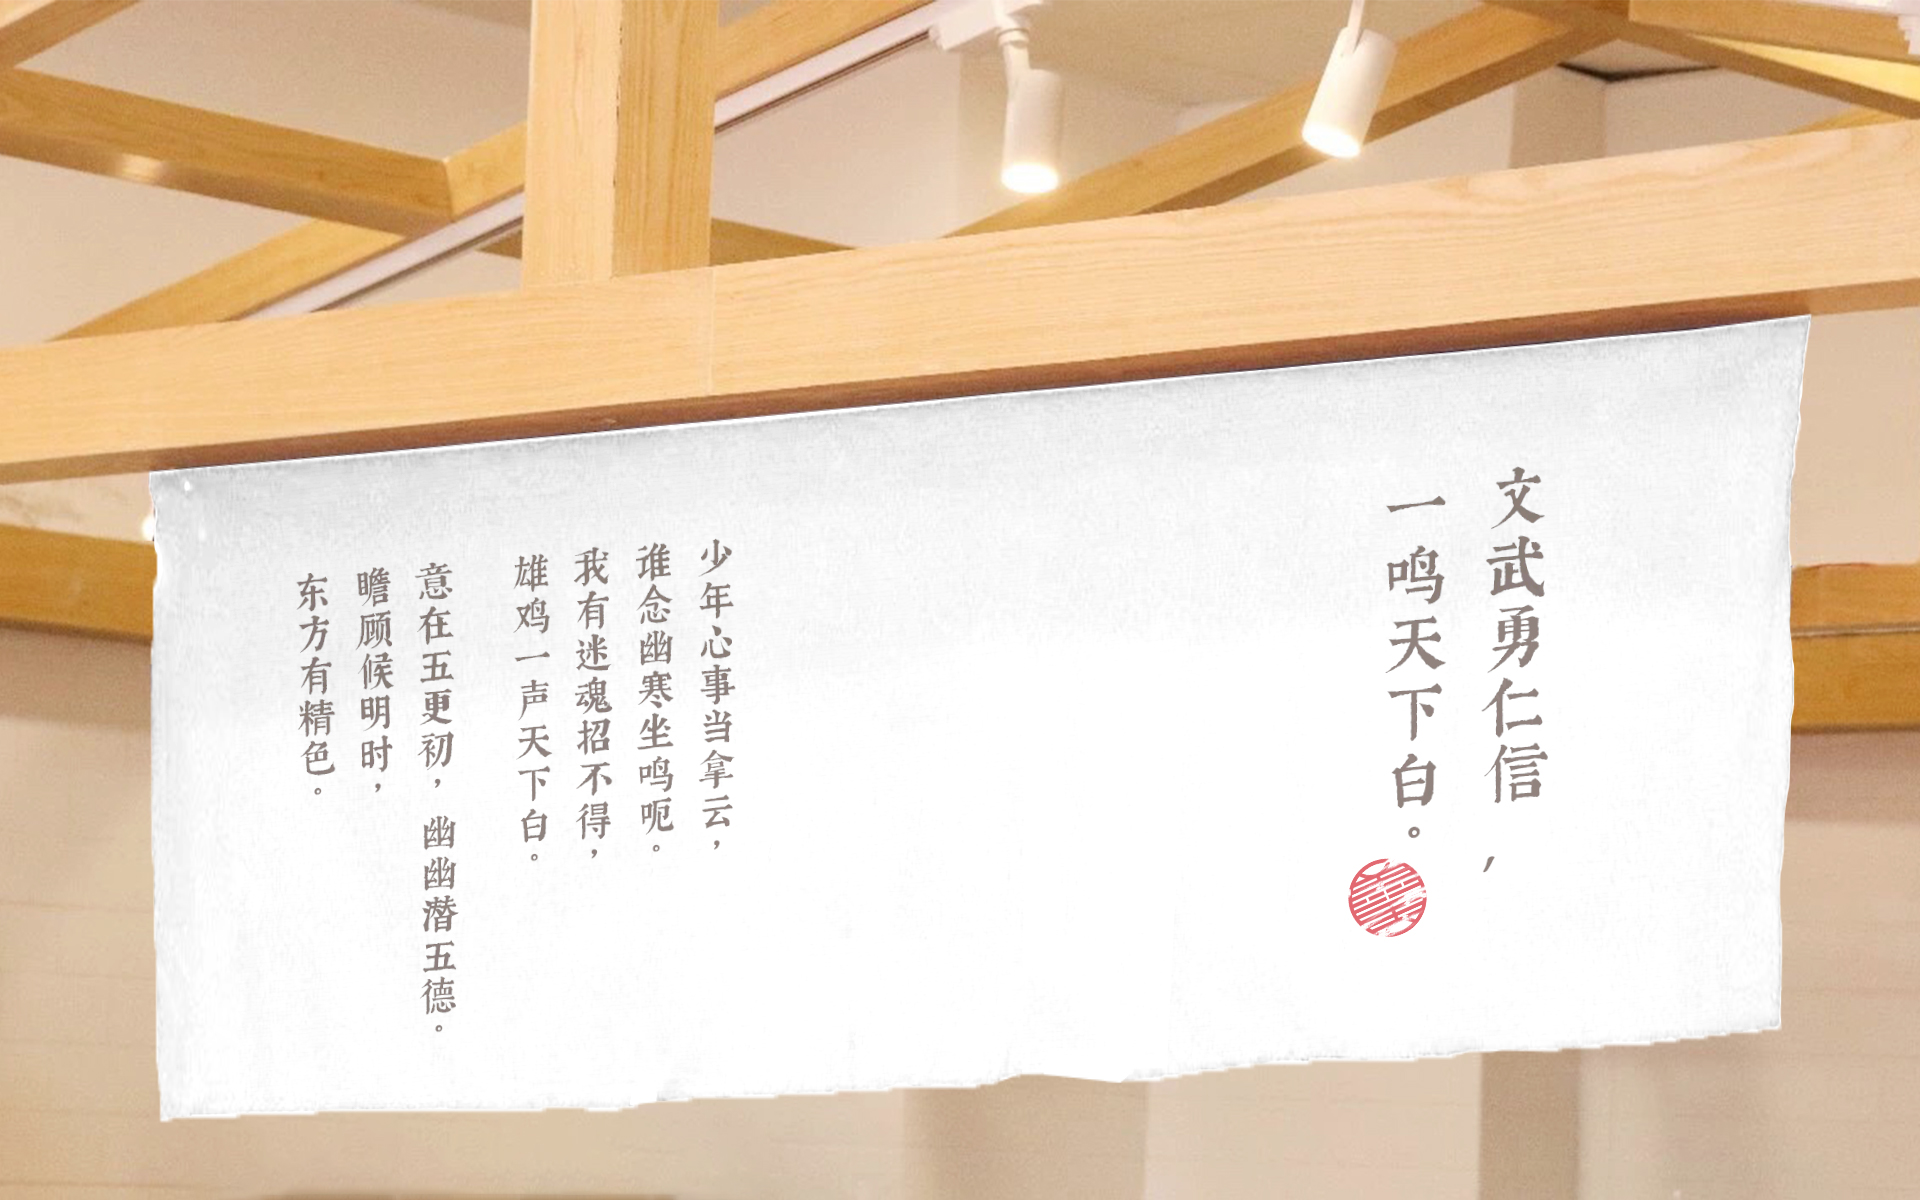 文武勇仁信，
一鸣天下白。
少年心事当拿云，
谁念幽寒坐鸣呃。
我有迷魂招不得，
雄鸡一声天下白。
意在五更初，幽幽潜五德。
瞻顾候明时，
东方有精色。